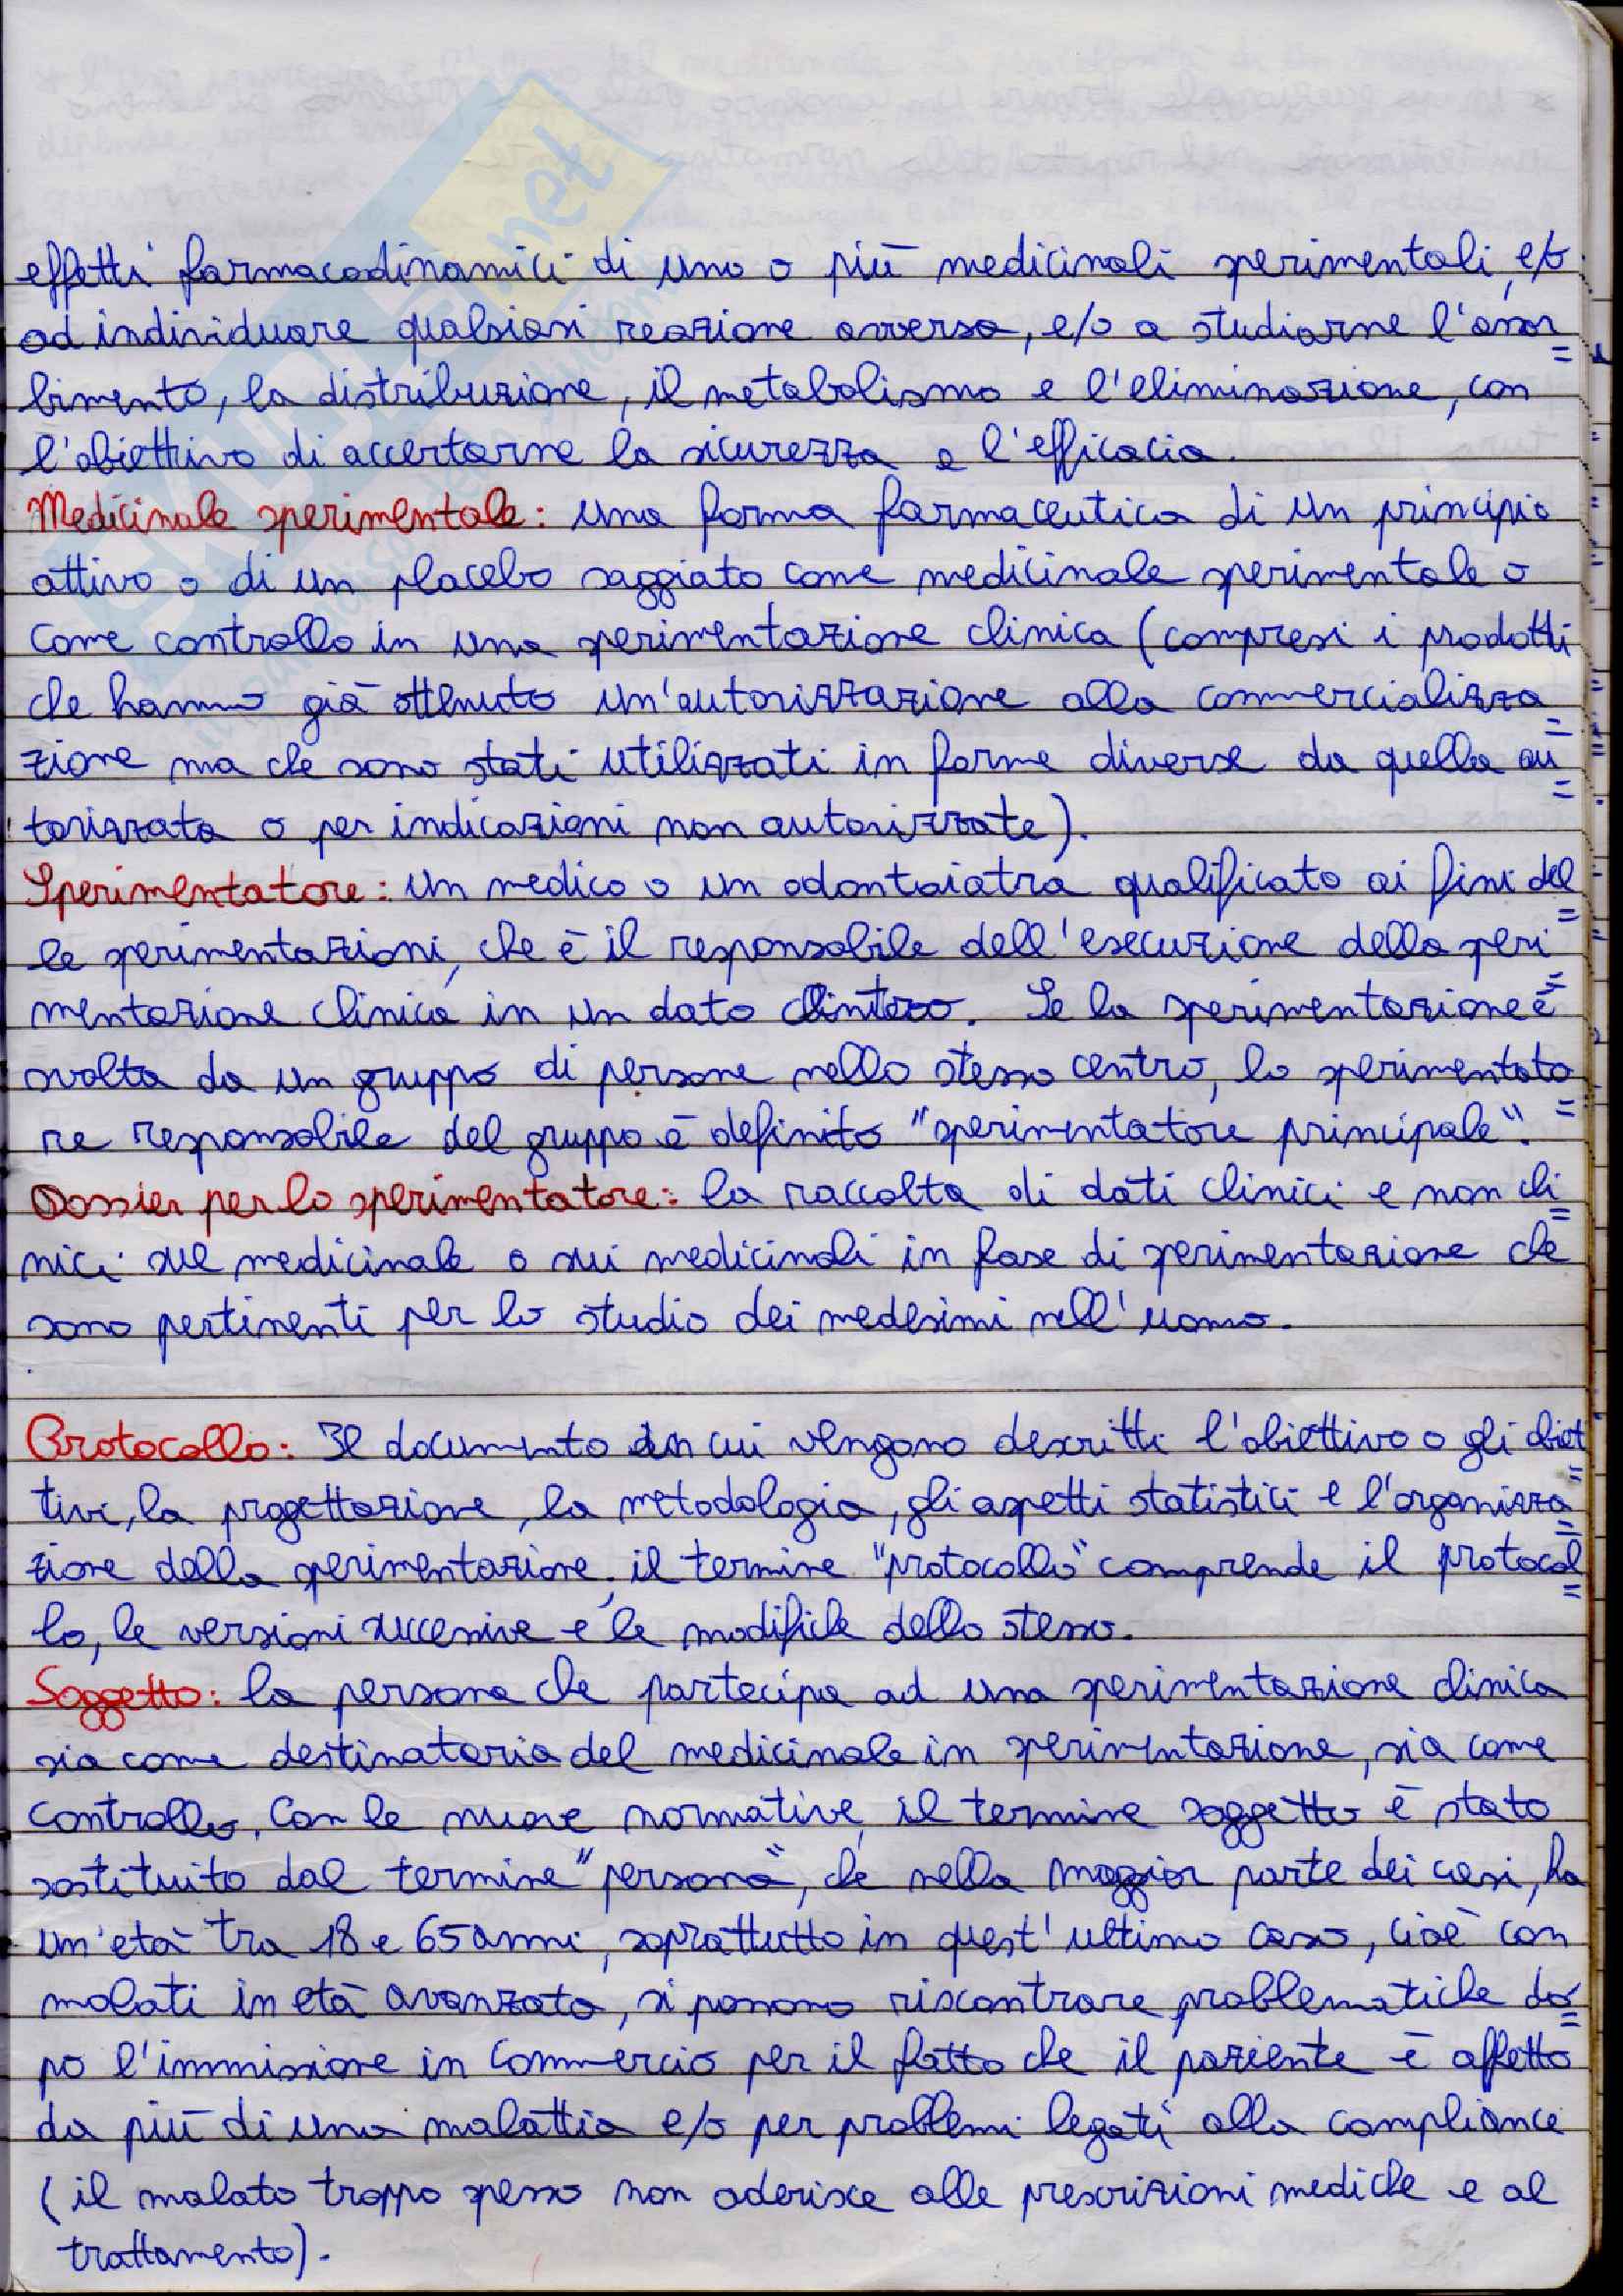 effetti farmacodinamici di uno o più medicinali sperimentali, e/o
ad individuare qualsiasi reazione avversa, e/o a studiarne l'assor
bimento, la distribuzione, il metabolismo e l'eliminazione, con
l'obiettivo di accertarne la sicurezza e l'efficacia.
Medicinale sperimentale: una forma farmaceutica di un principio
attivo o di un placebo saggiato come medicinale sperimentale o
come controllo in una sperimentazione clinica (compresi i prodotti
che hanno già ottenuto un'autorizzazione alla commercializza
zione ma che sono stati utilizzati in forme diverse da quella au
torizzata o per indicazioni non autorizzate).
Sperimentatore: un medico o un odontoiatra qualificato ai fini del
le sperimentazioni, che è il responsabile dell'esecuzione della speri
mentazione clinica in un dato centro. Se la sperimentazione è
svolta da un gruppo di persone nello stesso centro, lo sperimentato
re responsabile del gruppo è definito "sperimentatore principale".
Dossier per lo sperimentatore: la raccolta di dati clinici e non cli
nici sul medicinale o sui medicinali in fase di sperimentazione che
sono pertinenti per lo studio dei medesimi nell'uomo.
Protocollo: Il documento in cui vengono descritti l'obiettivo o gli obiet
tivi, la progettazione, la metodologia, gli aspetti statistici e l'organizza
zione della sperimentazione; il termine "protocollo" comprende il protocol
lo, le versioni successive e le modifiche dello stesso.
Soggetto: la persona che partecipa ad una sperimentazione clinica
sia come destinataria del medicinale in sperimentazione, sia come
controllo. Con le nuove normative, il termine soggetto è stato
sostituito dal termine "persona", che nella maggior parte dei casi, ha
un'età tra 18 e 65 anni, soprattutto in quest'ultimo caso, cioè con
malati in età avanzata, si possono riscontrare problematiche do
po l'immissione in commercio per il fatto che il paziente è affetto
da più di una malattia e/o per problemi legati alla compliance
(il malato troppo spesso non aderisce alle prescrizioni mediche e al
trattamento).